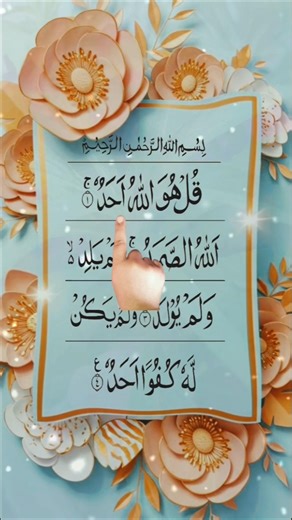 بِسْمِ اللهِ الرَّحْمٰنِ الرَّحِيْمِ
قُلْ هُوَ اللهُ اَحَدٌ ۚ ۝١
اَللهُ الصَّمَدُ ۚ يَلِدْ ۙ
وَلَمْ يُوْلَدْ ۝٣ وَلَمْ يَكُنْ
لَّهٗ كُفُوًا اَحَدٌ ۝٤ ع